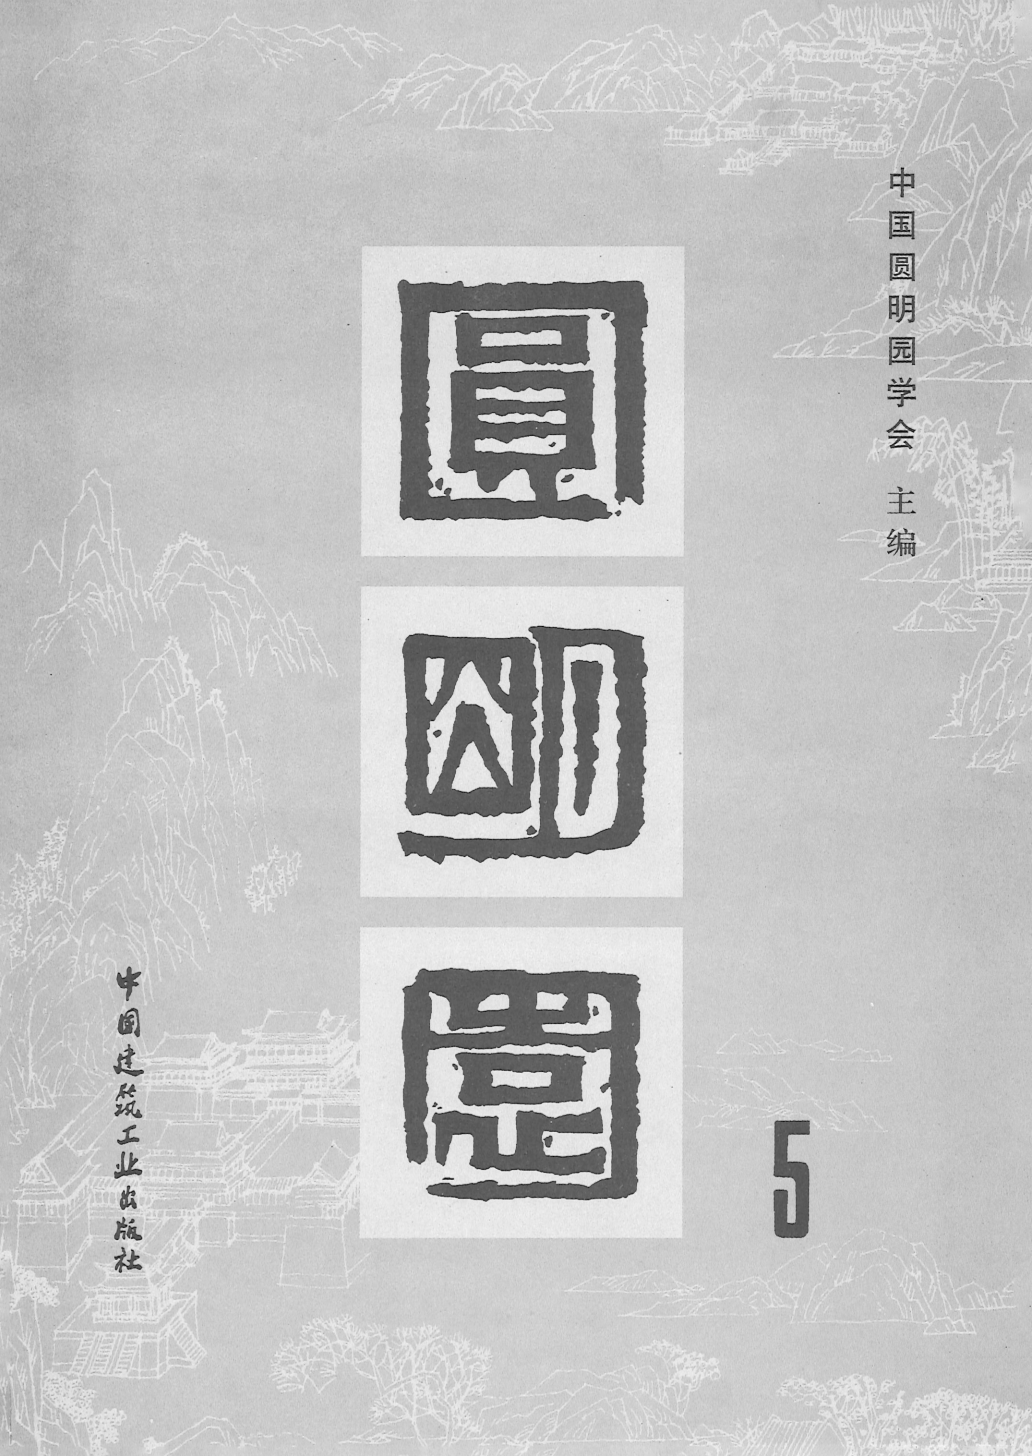 中国圆明园学会 主编
圓
明
園
5
中国建筑工业出版社